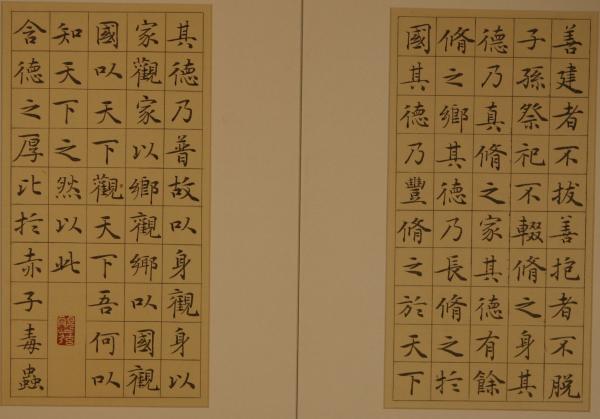 善建者不拔善抱者不脱
子孫祭祀不輟脩之身其
德乃真脩之家其德有餘
脩之鄉其德乃長脩之扵
國其德乃豐脩之於天下
其德乃普故以身觀身以
家觀家以鄉觀鄉以國觀
國以天下觀天下吾何以
知天下之然以此
含德之厚比扵赤子毒蟲